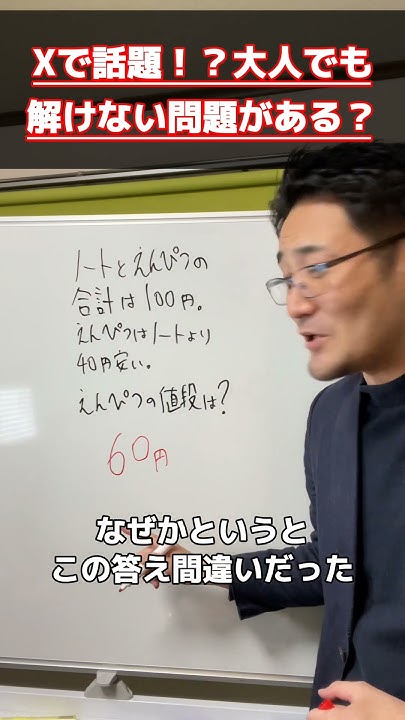 Xで話題！？大人でも
解けない問題がある？
ノートとえんぴつの
合計は100円。
えんぴつはノートより
40円安い。
えんぴつの値段は？
60円
なぜかというと
この答え間違いだった